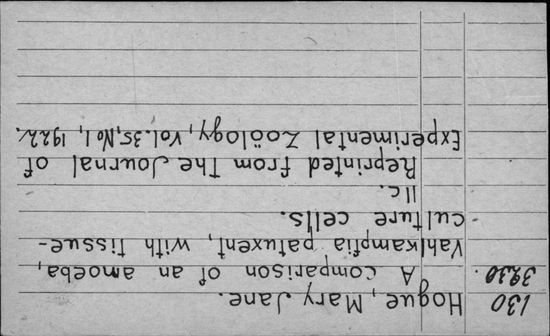 130 Hogue, Mary Jane.
3920. A comparison of an amoeba,
Vahlkampfia patuxent, with tissue-
culture cells.
11c.
Reprinted from The Journal of
Experimental Zoölogy, Vol. 35, No 1, 1922.